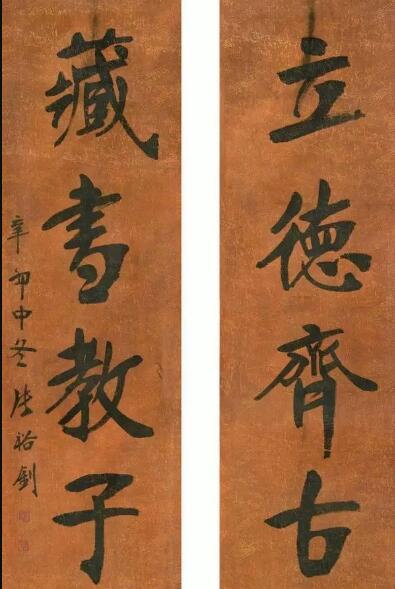 立德齊古
藏書教子
辛卯中冬 張裕釗